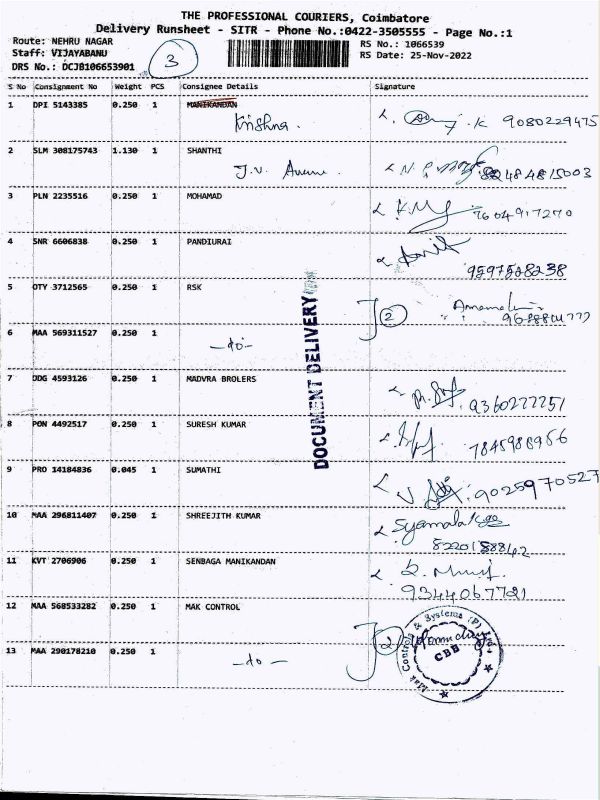 THE PROFESSIONAL COURIERS, Coimbatore
Delivery Runsheet - SITR - Phone No.:0422-3505555 - Page No.:1
Route: NEHRU NAGAR
Staff: VIJAYABANU
DRS No.: DCJB106653901
3
RS No.: 1066539
RS Date: 25-Nov-2022
S No Consignment No Weight PCS Consignee Details Signature
1 DPI 5143385 0.250 1 MANIKANDAN
Krishna. K 9080229475
2 SLM 308175743 1.130 1 SHANTHI
J.V.
3 PLN 2235516 0.250 1 MOHAMAD
7604917270
4 SNR 6606838 0.250 1 PANDIURAI
9597508238
5 OTY 3712565 0.250 1 RSK
2
6 MAA 569311527 0.250 1
-do-
DOCUMENT DELIVERY
7 JDG 4593126 0.250 1 MADVRA BROLERS
9360277251
8 PON 4492517 0.250 1 SURESH KUMAR
7845988966
9 PRO 14184836 0.045 1 SUMATHI
9025970527
10 MAA 296811407 0.250 1 SHREEJITH KUMAR
Syamala
11 KVT 2706906 0.250 1 SENBAGA MANIKANDAN
9344067721
12 MAA 568533282 0.250 1 MAK CONTROL
2
Mak Controls & Systems (P)
CBE
13 MAA 290178210 0.250 1
-do-